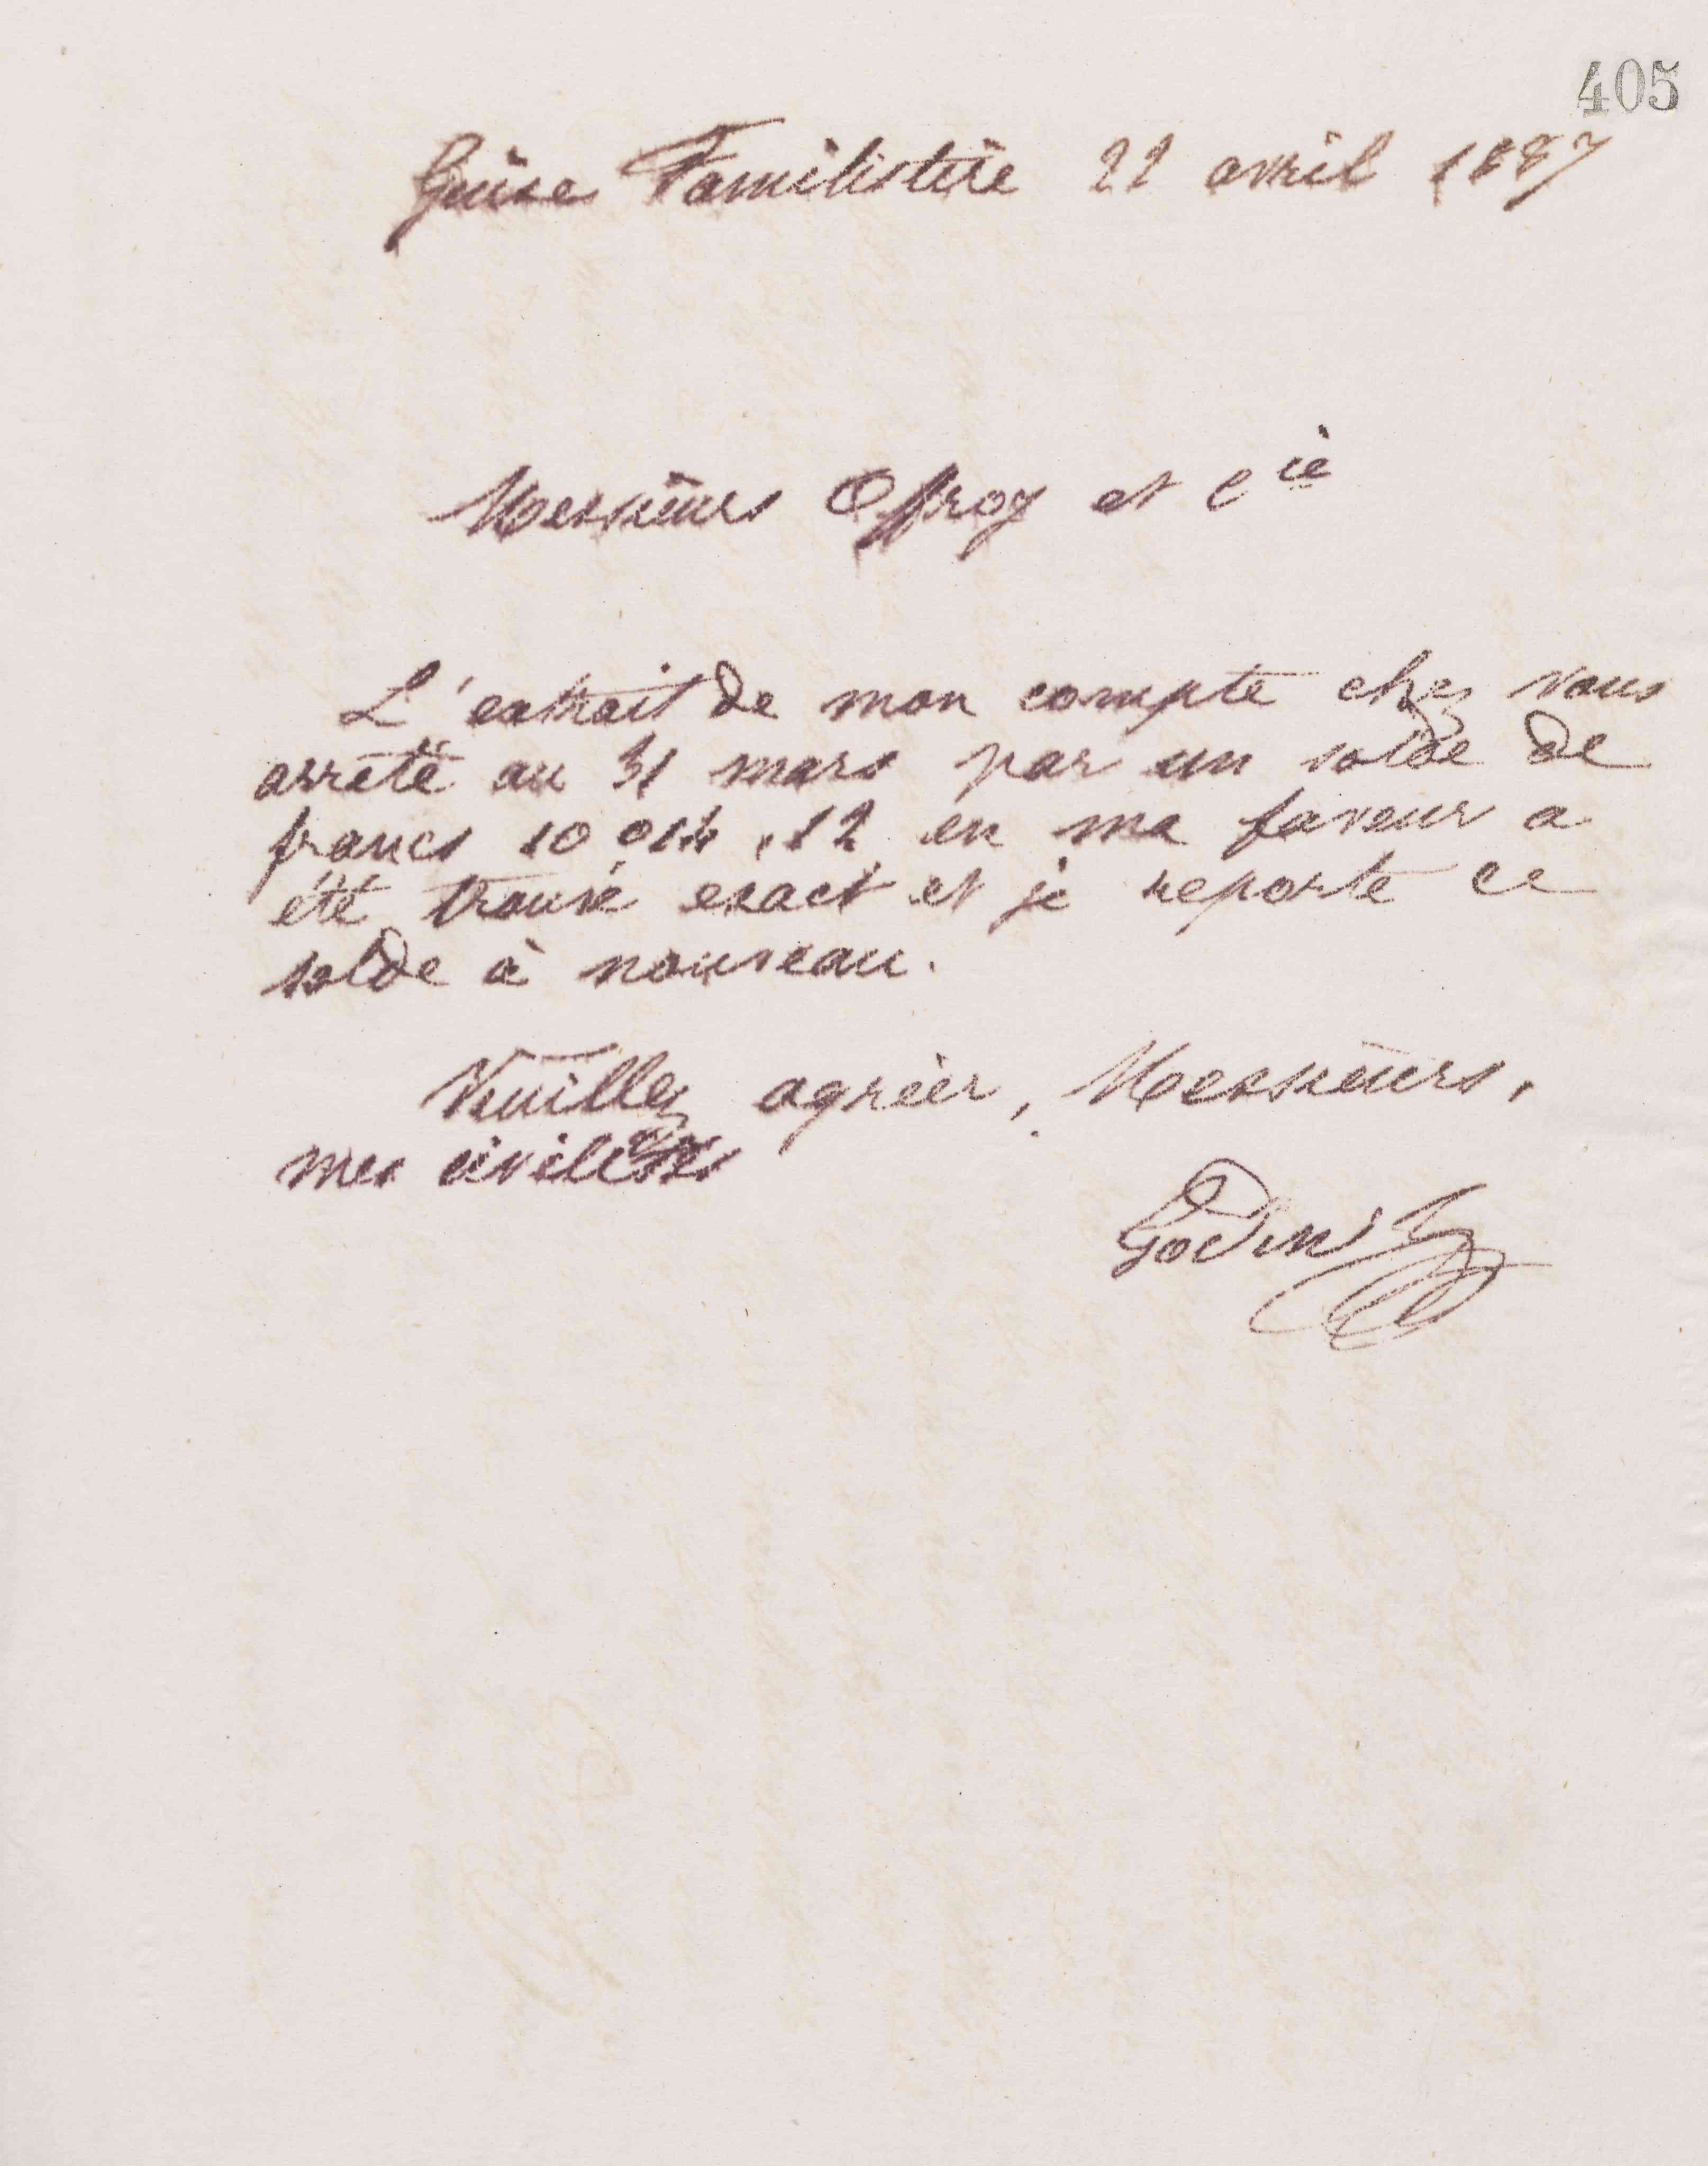 405
Guise Familistère 22 avril 1887
Messieurs Offroy et Cie
L'extrait de mon compte chez vous
arrêté au 31 mars par un solde de
francs 10 014,12 en ma faveur a
été trouvé exact et je reporte ce
solde à nouveau.
Veuillez agréer, Messieurs,
mes civilités
Godin